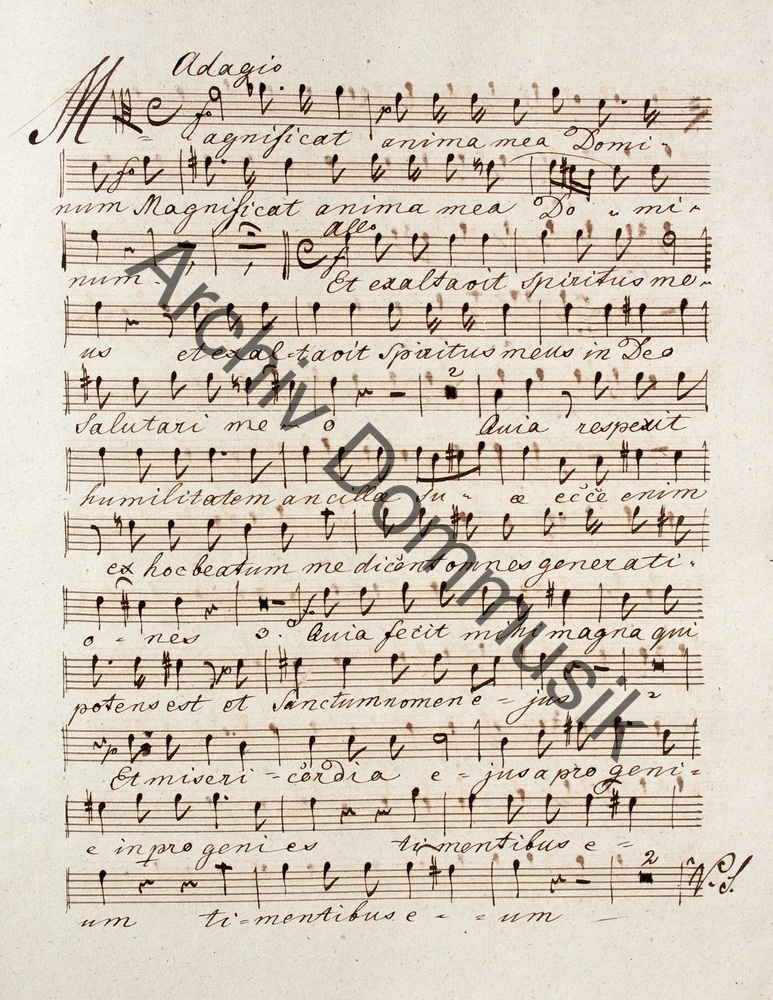 Adagio
Magnificat anima mea Domi-
num Magnificat anima mea Do - mi-
allo
num. Et exaltavit spiritus me-
us et exaltavit Spiritus meus in Deo
Salutari me - o 2 Quia respexit
humilitatem ancillæ su - æ ecce enim
ex hoc beatum me dicent omnes generati-
o - nes 3. Quia fecit mihi magna qui
potens est et Sanctum nomen e - jus 2
Et miseri - cordia e - jus a pro geni =
e in pro geni es ti mentibus e =
um ti = mentibus e - - um 2 V. S.
Archiv Dommusik